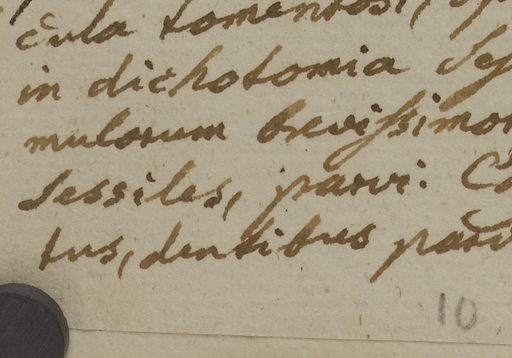 cula tomentosi,
in dichotomia
mulorum brevissimor
sessiles, parvi. C
tus, dentibus
10